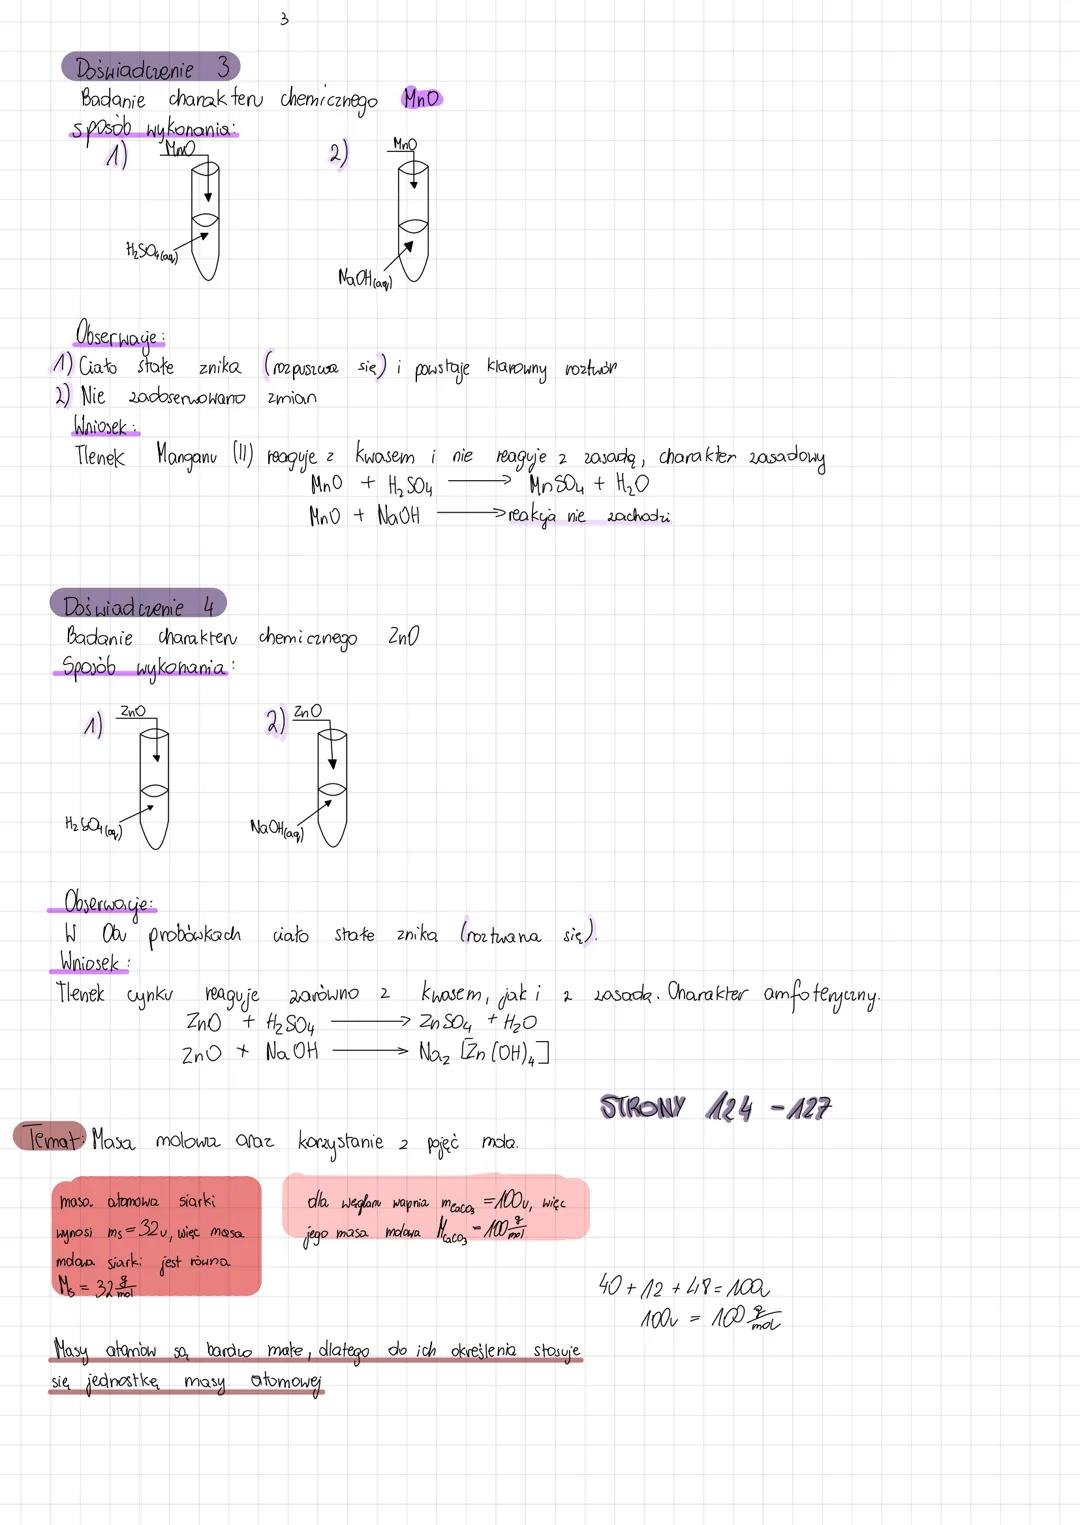 3
Doświadczenie 3
Badanie charakteru chemicznego MnO
sposób wykonania:
1) MnO
2) MnO
H₂SO₄(aq)
NaOH(aq)
Obserwacje:
1) Ciało stałe znika (rozpuszcza się) i powstaje klarowny roztwór
2) Nie zaobserwowano zmian
Wniosek:
Tlenek Manganu (II) reaguje z kwasem i nie reaguje z zasadą, charakter zasadowy
MnO + H₂SO₄ → MnSO₄ + H₂O
MnO + NaOH → reakcja nie zachodzi
Doświadczenie 4
Badanie charakteru chemicznego ZnO
Sposób wykonania:
1) ZnO
2) ZnO
H₂SO₄(aq)
NaOH(aq)
Obserwacje:
W Obu probówkach ciało stałe znika (roztwarza się).
Wniosek:
Tlenek cynku reaguje zarówno z kwasem, jak i z zasadą. Charakter amfoteryczny.
ZnO + H₂SO₄ → ZnSO₄ + H₂O
ZnO + NaOH → Na₂[Zn(OH)₄]
STRONY 124 - 127
Temat: Masa molowa oraz korzystanie z pojęć mola.
masa atomowa siarki
wynosi ms = 32u, więc masa
molowa siarki jest równa
Ms = 32 g/mol
dla węglanu wapnia mCaCO₃ = 100u, więc
jego masa molowa MCaCO₃ = 100 g/mol
40 + 12 + 48 = 100u
100u = 100 g/mol
Masy atomów są bardzo małe, dlatego do ich określenia stosuje
się jednostkę masy atomowej